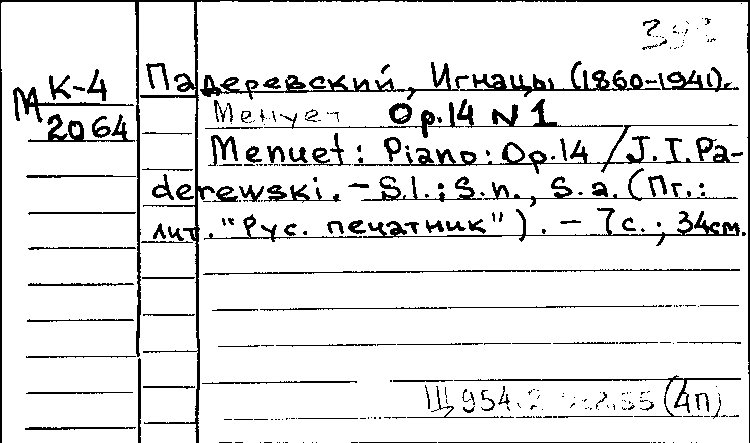 М К-4
2064
Падеревский, Игнацы (1860-1941).
Менует Op.14 N1
Menuet: Piano: Op.14 / J.I.Pa-
derewski. - S.l.; S.n., S.a. (Пг.:
лит. "Рус. печатник"). - 7с.; 34см.
Щ954.2 (4п)